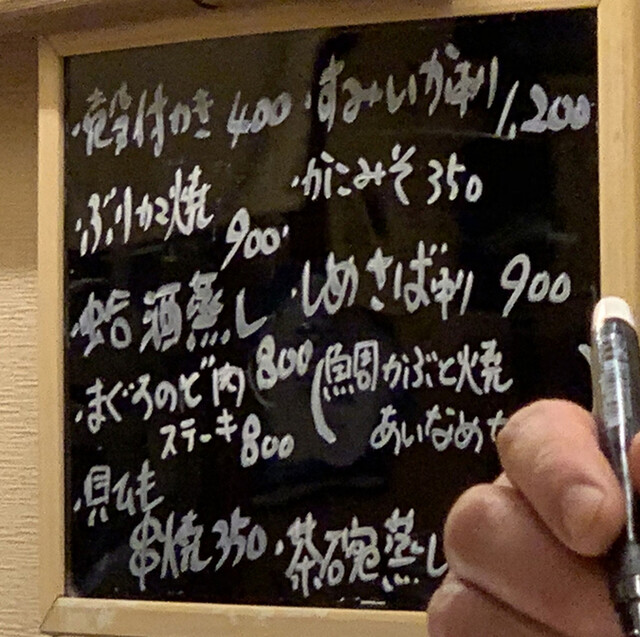 ・殻付かき 400
・すみいか刺 1,200
・ぶりカマ焼 900
・かにみそ 350
・蛤酒蒸し 800
・しめさば刺 900
・まぐろのど肉
ステーキ 800
(鯛かぶと焼
あいなめ
・貝ひも
串焼 350
・茶碗蒸し